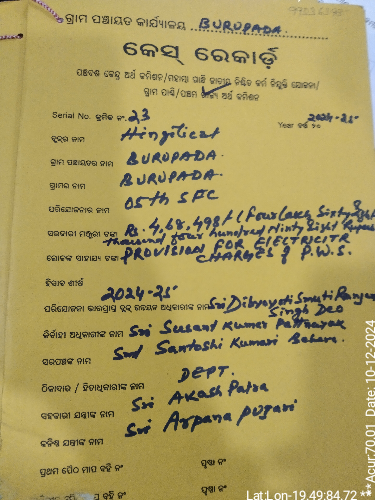 ଗ୍ରାମ ପଞ୍ଚାୟତ କାର୍ଯ୍ୟାଳୟ BURUPADA
କେସ୍ ରେକର୍ଡ଼
ଗ୍ରାମ ପାଣ୍ଠି/ପଞ୍ଚମ ରାଜ୍ୟ ଅର୍ଥ କମିଶନ
Serial No. କ୍ରମିକ ନଂ. 23
Year ବର୍ଷ ୨୦ 2024-25
ବ୍ଲକ୍‌ର ନାମ Hinjilicat
ଗ୍ରାମ ପଞ୍ଚାୟତର ନାମ BURUPADA.
ଗ୍ରାମର ନାମ BURUPADA.
ପରିଯୋଜନାର ନାମ 05th SFC
ସରକାରୀ ମଞ୍ଜୁରୀ ଟଙ୍କା Rs. 4,68,498/- (Four Lakhs Sixty Eight
thousand four hundred Ninty Eight Rupees
ଲୋକଙ୍କ ସାହାଯ୍ୟ ଟଙ୍କା PROVISION FOR ELECTRICITR
CHARGES & P.W.S.
ହିସାବ ଶୀର୍ଷ
2024-25
ପରିଯୋଜନା ଭାରପ୍ରାପ୍ତ ବ୍ଲକ୍ ଉନ୍ନୟନ ଅଧିକାରୀଙ୍କ ନାମ Sri Dibyajyoti Smruti Ranjan
Singh Deo
ନିର୍ବାହୀ ଅଧିକାରୀଙ୍କ ନାମ Sri Susant Kumar Pattnayak
ସରପଞ୍ଚଙ୍କ ନାମ Smt Santoshi Kumari Behera.
DEPT.
ଠିକାଦାର / ହିତାଧିକାରୀଙ୍କ ନାମ
ସହକାରୀ ଯନ୍ତ୍ରୀଙ୍କ ନାମ Sri Akash Patra
କନିଷ୍ଠ ଯନ୍ତ୍ରୀଙ୍କ ନାମ Sri Arpana Pujari
ପ୍ରଥମ ପୈଠ ମାପ ବହି ନଂ ପୃଷ୍ଠା ନଂ
ମାପ ବହି ନଂ ପୃଷ୍ଠା ନଂ
Lat:Lon-19.49:84.72 ***
Acur:70.01 Date: 10-12-2024